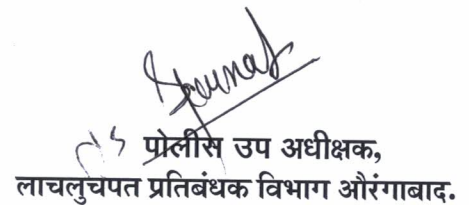 पोलीस उप अधीक्षक,
लाचलुचपत प्रतिबंधक विभाग औरंगाबाद.